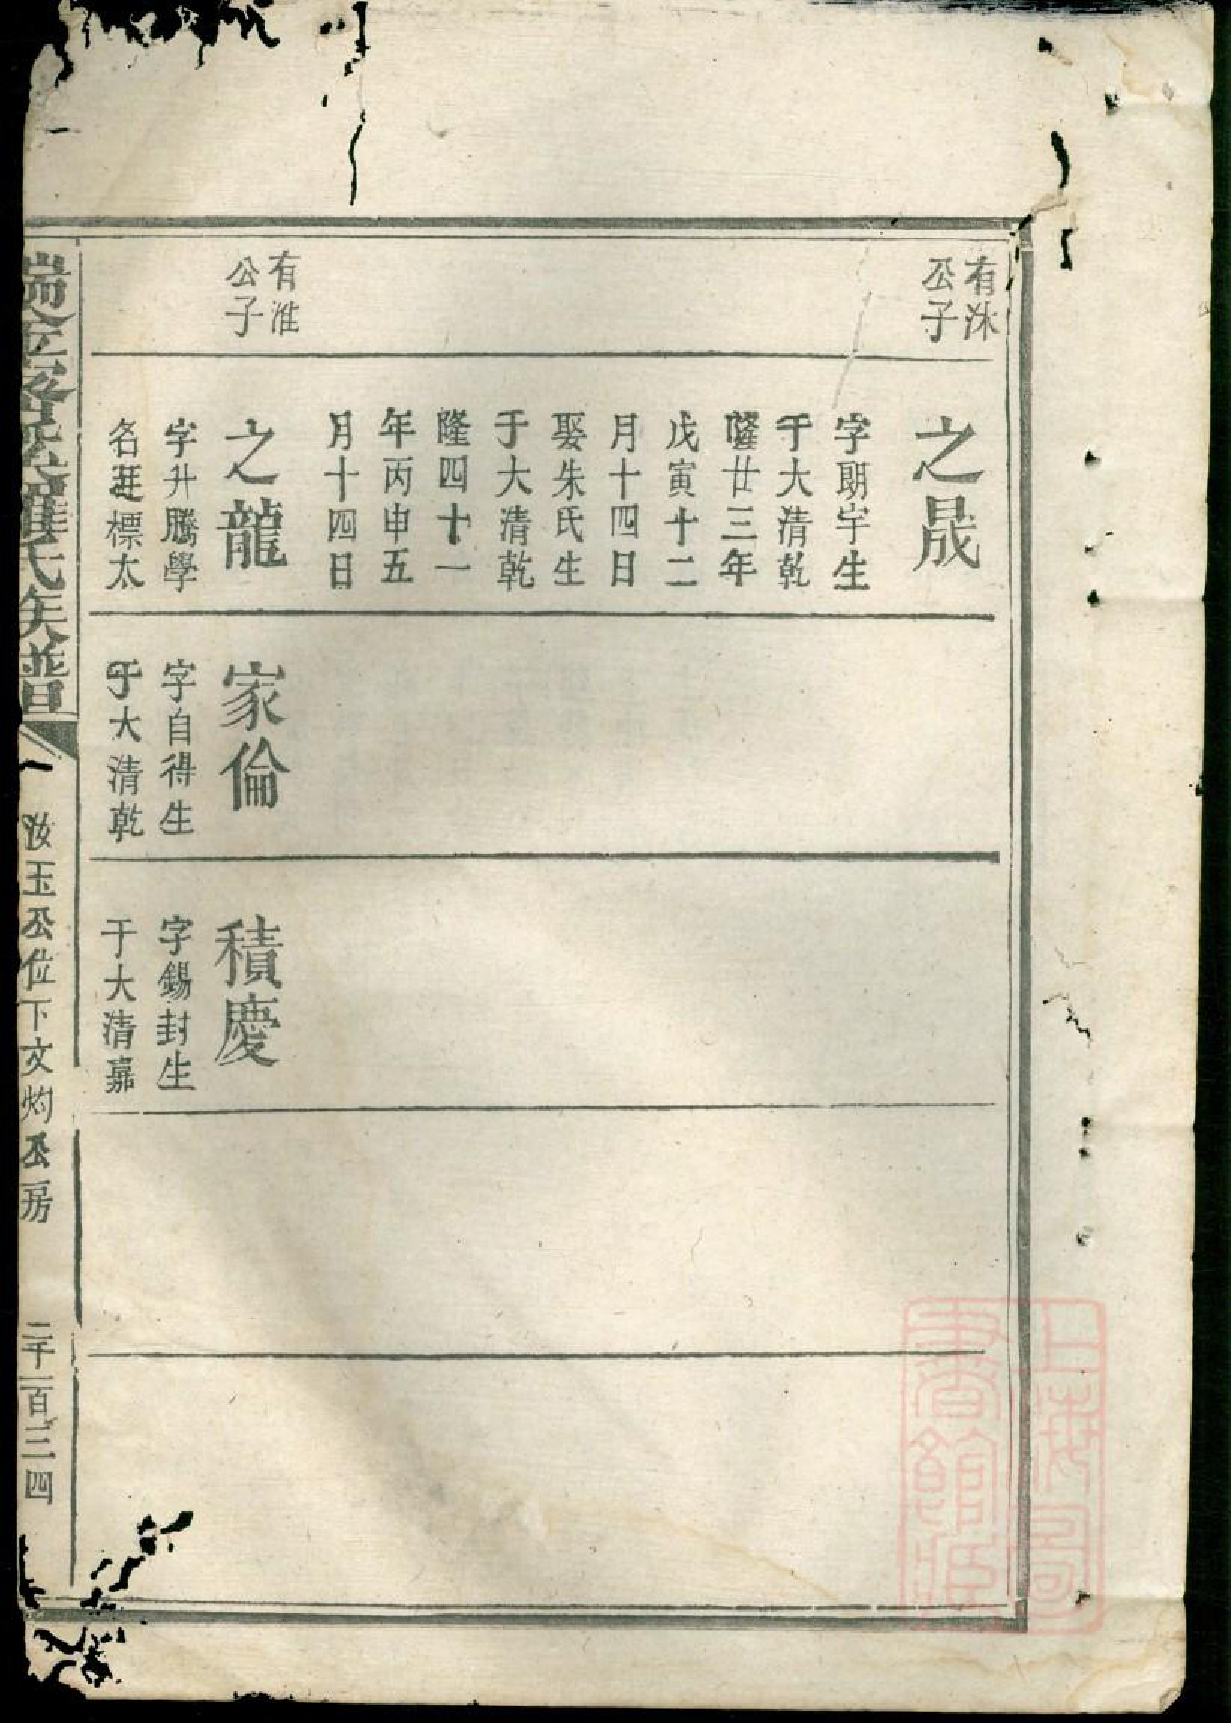 有洙
公子
之晟
字朗宇生
于大清乾
隆廿三年
戊寅十二
月十四日
娶朱氏生
于大清乾
隆四十一
年丙申五
月十四日
有淮
公子
之龍
字升騰學
名廷標太
家倫
字自得生
于大清乾
積慶
字錫封生
于大清嘉
羅氏族譜
汝玉公位下文灼公房
二千一百三四
上海圖
書館藏